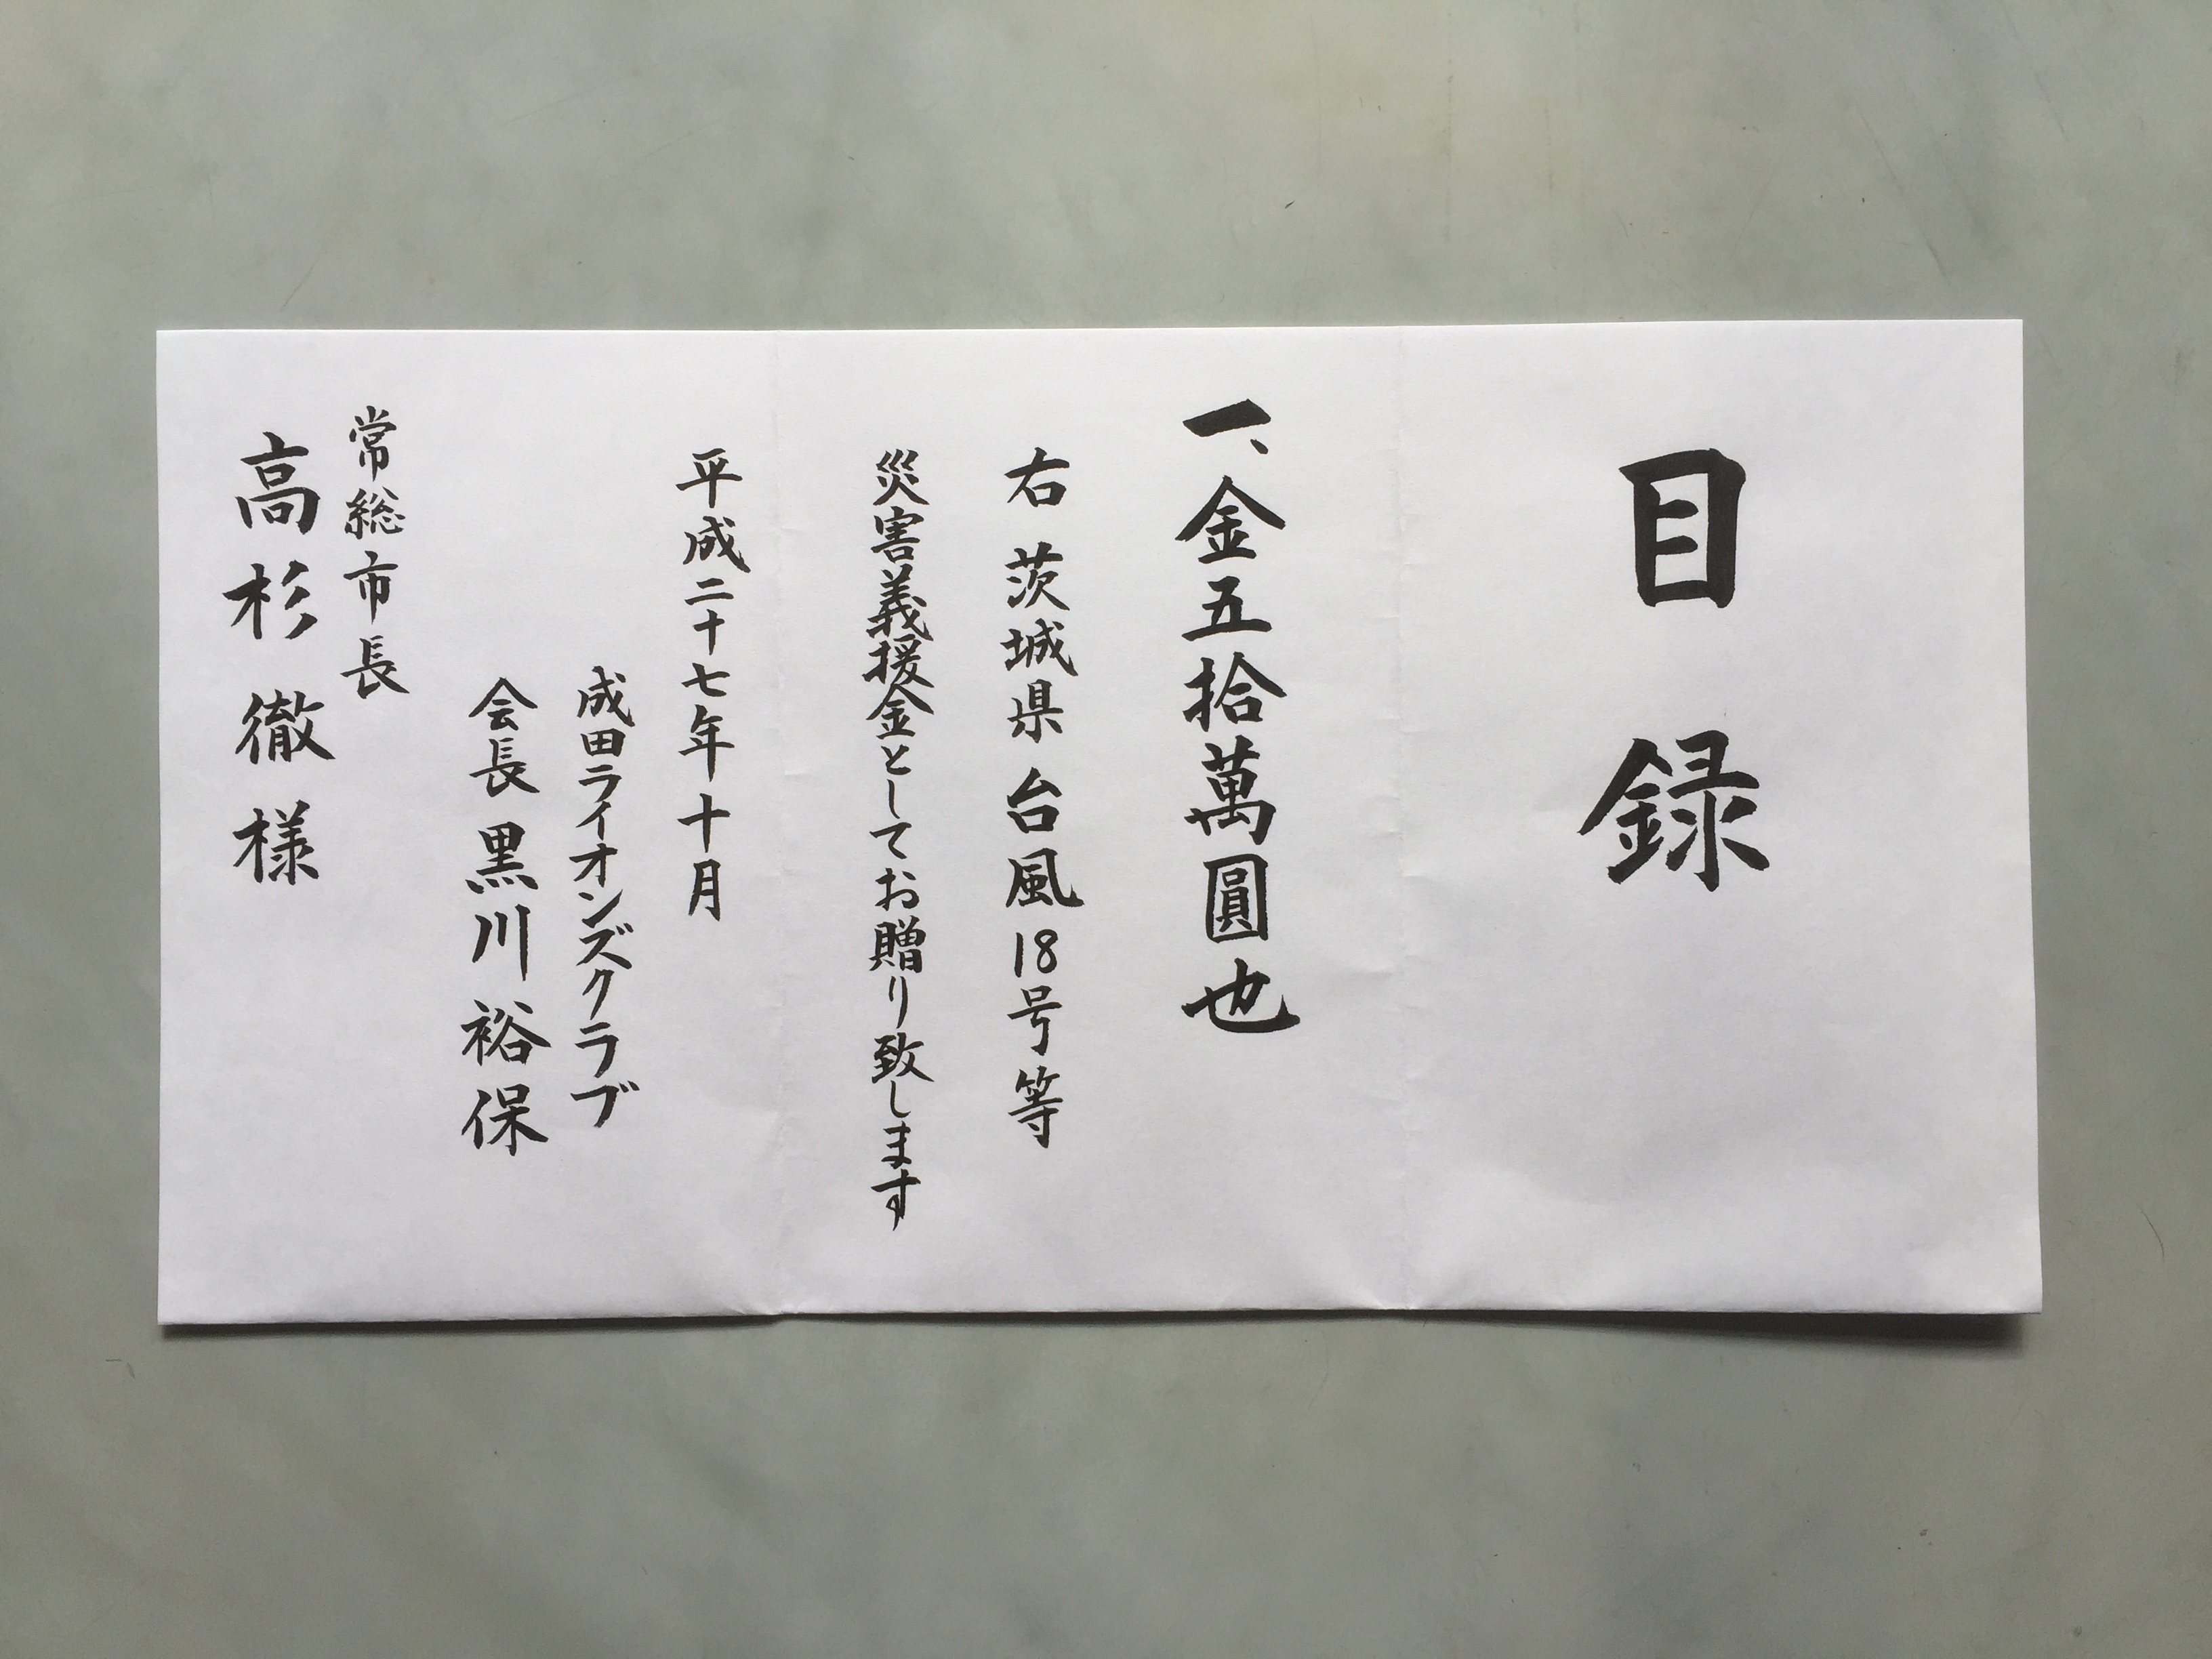 目録
一、金五拾萬圓也
右 茨城県 台風18号等
災害義援金としてお贈り致します
平成二十七年十月
成田ライオンズクラブ
会長 黒川裕保
常総市長
高杉徹様